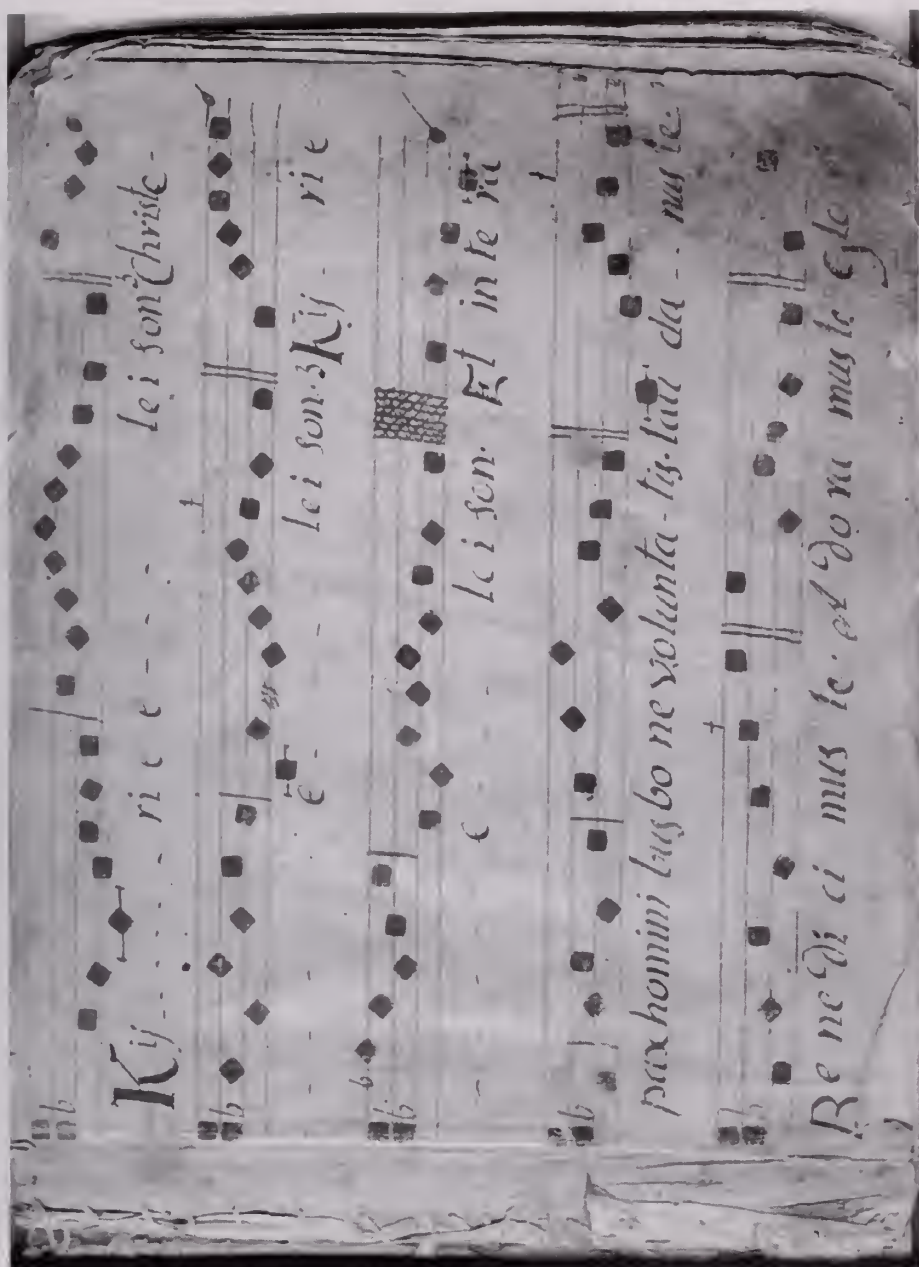 Kij - - - - - rie e - - - - lei son. Christe -
- - - - - e - - - lei son. 3 Kij - rie
- - - - - e - - lei son. Et in te rra
pax homini bus bo ne volunta - tis. lau da - - nus te.
Be ne di ci mus te. Ad do ra mus te Glo